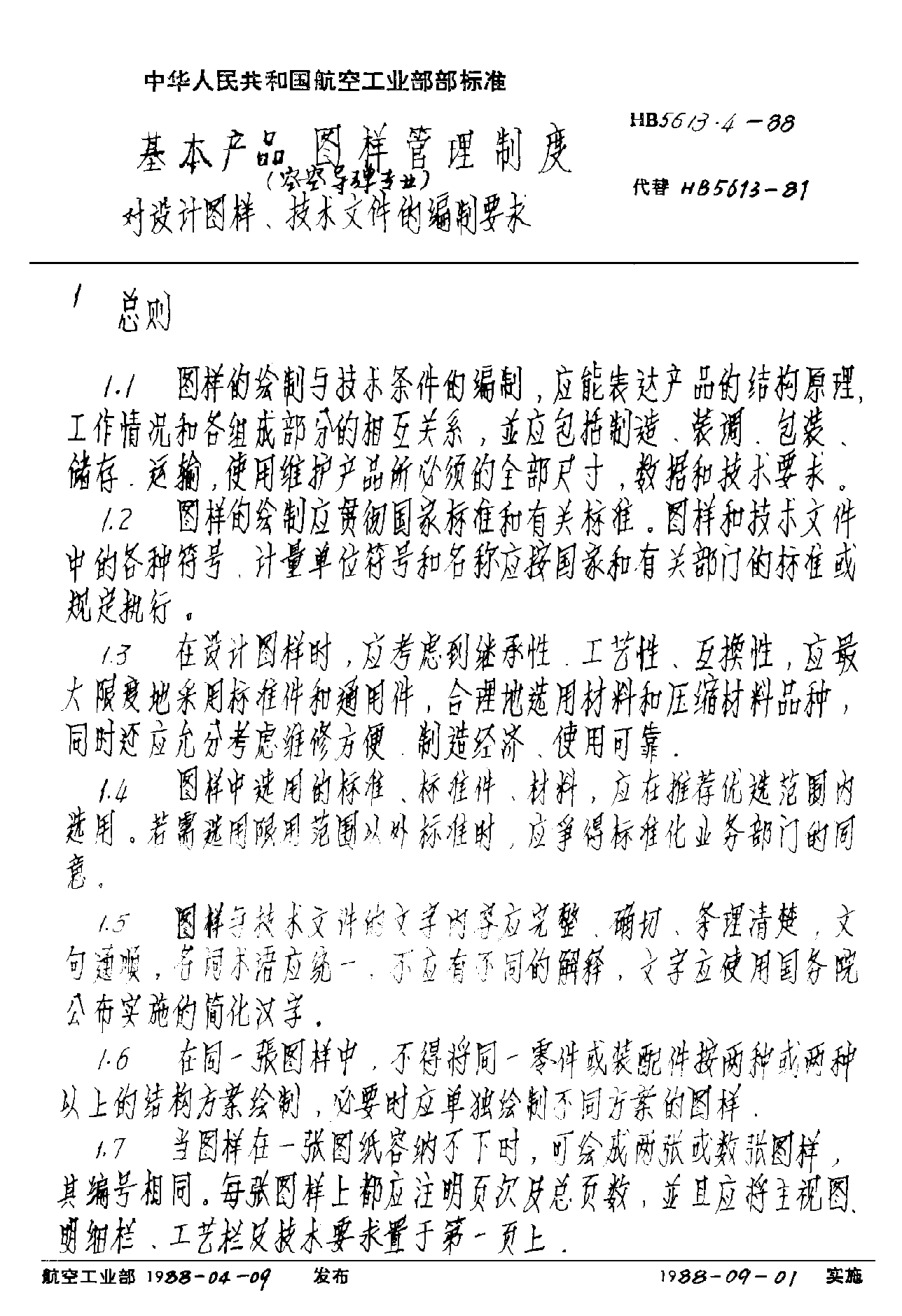 中华人民共和国航空工业部部标准
HB5613·4-88
基本产品图样管理制度
(空空导弹专业)
代替 HB5613-81
对设计图样、技术文件的编制要求
1 总则
1.1 图样的绘制与技术条件的编制,应能表达产品的结构原理,
工作情况和各组成部分的相互关系,並应包括制造、装调、包装、
储存、运输,使用维护产品所必须的全部尺寸,数据和技术要求。
1.2 图样的绘制应贯彻国家标准和有关标准。图样和技术文件
中的各种符号、计量单位符号和名称应按国家和有关部门的标准或
规定执行。
1.3 在设计图样时,应考虑到继承性、工艺性、互换性,应最
大限度地采用标准件和通用件,合理地选用材料和压缩材料品种,
同时还应允分考虑维修方便、制造经济、使用可靠.
1.4 图样中选用的标准、标准件、材料,应在推荐优选范围内
选用。若需选用限用范围以外标准时,应争得标准化业务部门的同
意。
1.5 图样与技术文件的文字内容应完整、确切、条理清楚,文
句通顺,名词术语应统一、不应有不同的解释,文字应使用国务院
公布实施的简化汉字.
1.6 在同一張图样中,不得将同一零件或装配件按两种或两种
以上的结构方案绘制,必要时应单独绘制不同方案的图样.
1.7 当图样在一张图纸容纳不下时,可绘成两张或数张图样,
其编号相同。每张图样上都应注明页次及总页数,並且应将主视图、
明细栏、工艺栏及技术要求置于第一页上.
航空工业部 1988-04-09 发布 1988-09-01 实施